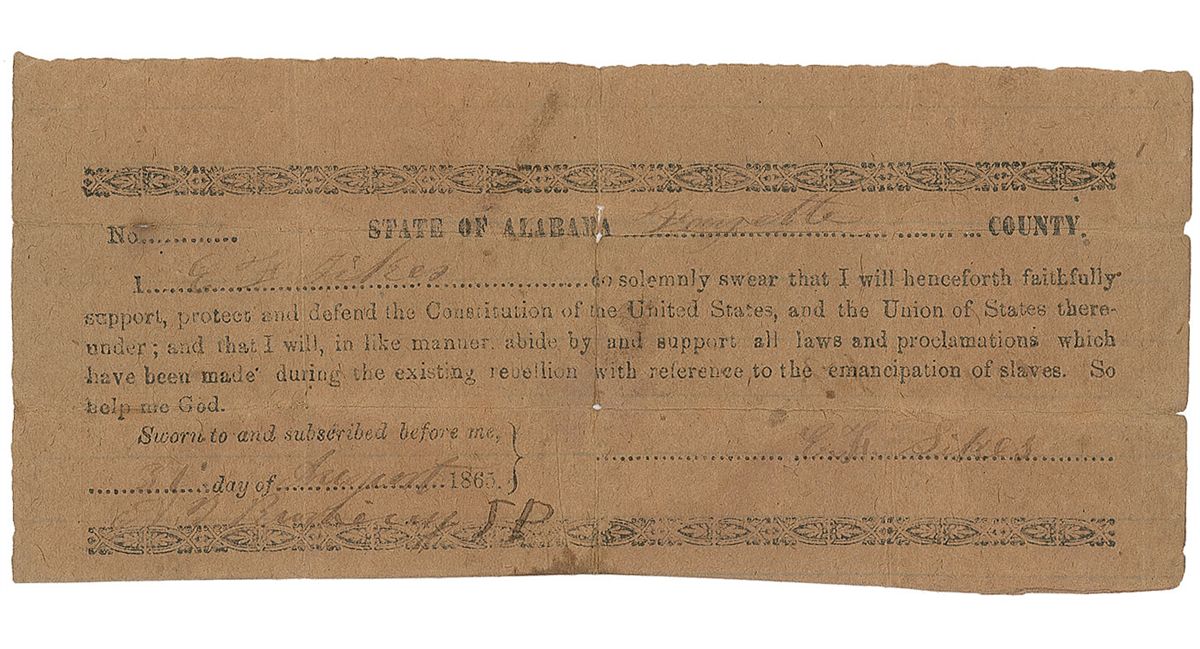 No............ STATE OF ALABAMA Fayette COUNTY.
I Sikes do solemnly swear that I will henceforth faithfully
support, protect and defend the Constitution of the United States, and the Union of States there-
under; and that I will, in like manner, abide by and support all laws and proclamations which
have been made during the existing rebellion with reference to the emancipation of slaves. So
help me God.
Sworn to and subscribed before me,
Sikes
day of August 1865.
JP